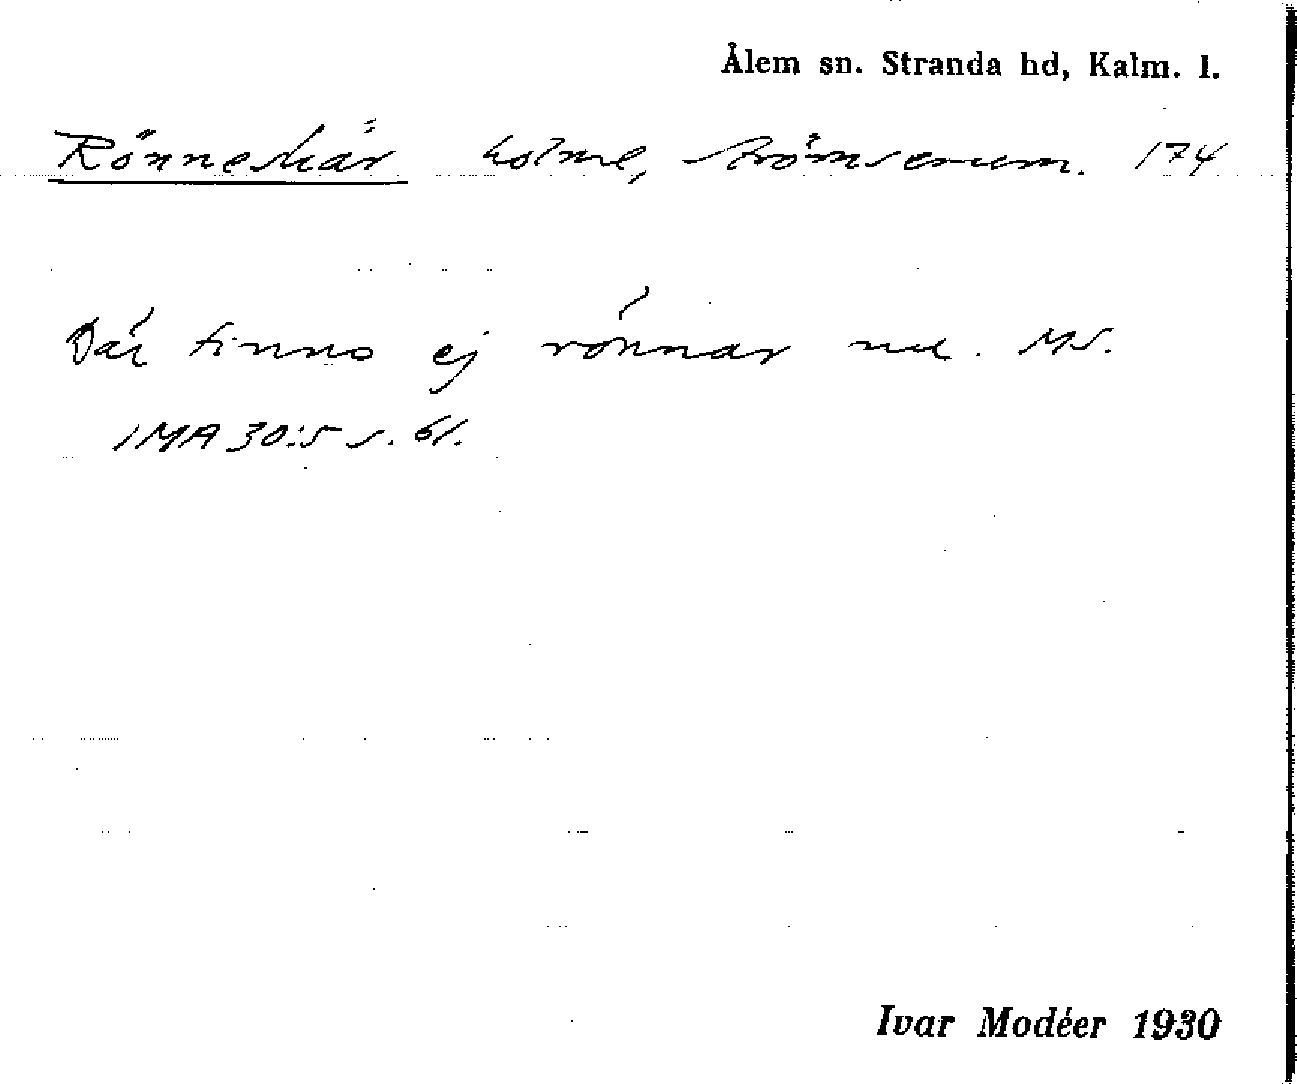 Ålem sn. Stranda hd, Kalm. l.
Rönneskär holme, Strömsrum. 174
Där finns ej rönnar nu. MS.
IMA 30:5 s. 61.
Ivar Modéer 1930